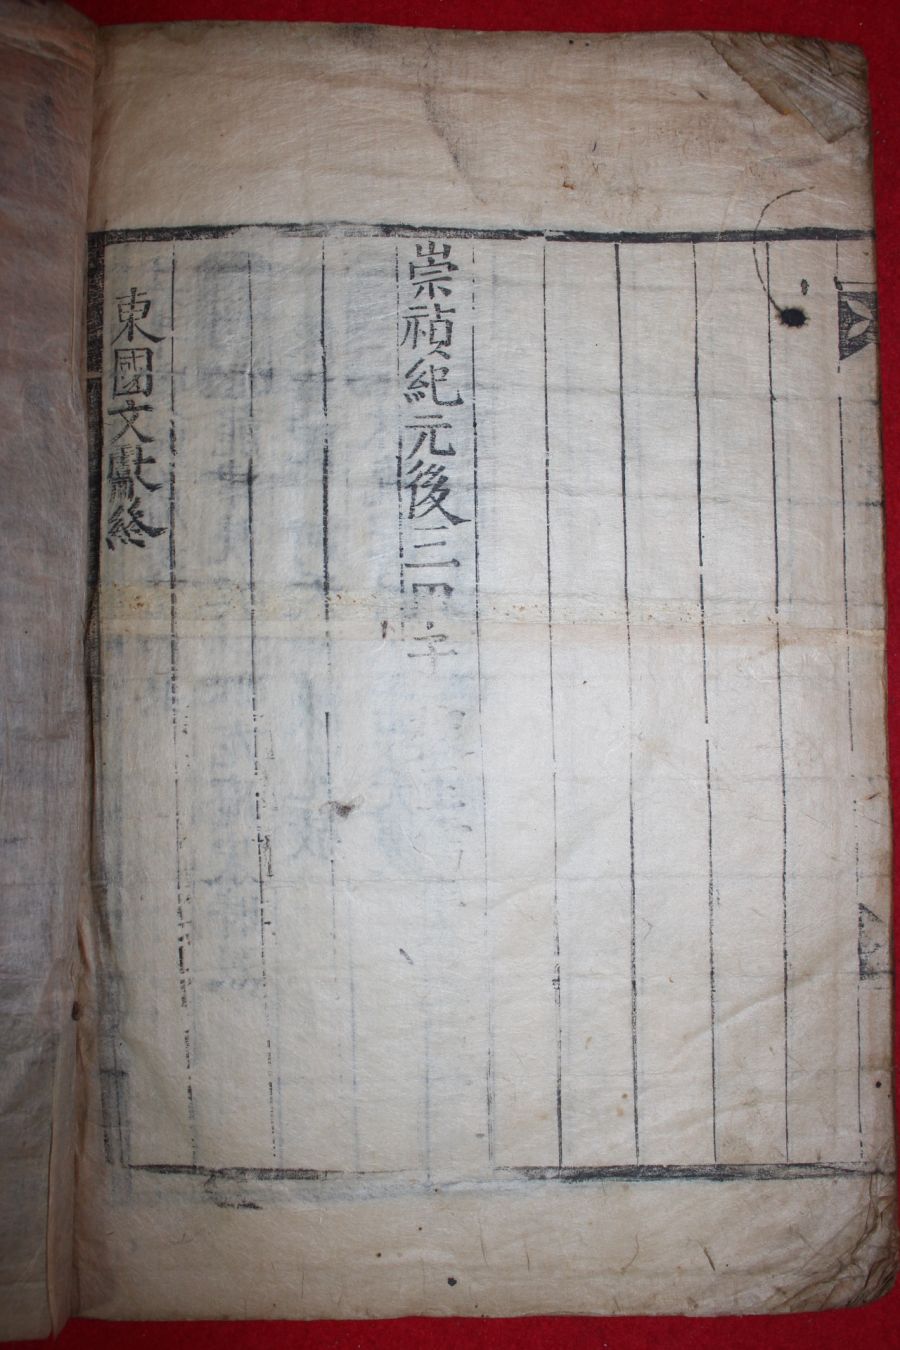 崇禎紀元後三甲子
東國文獻終